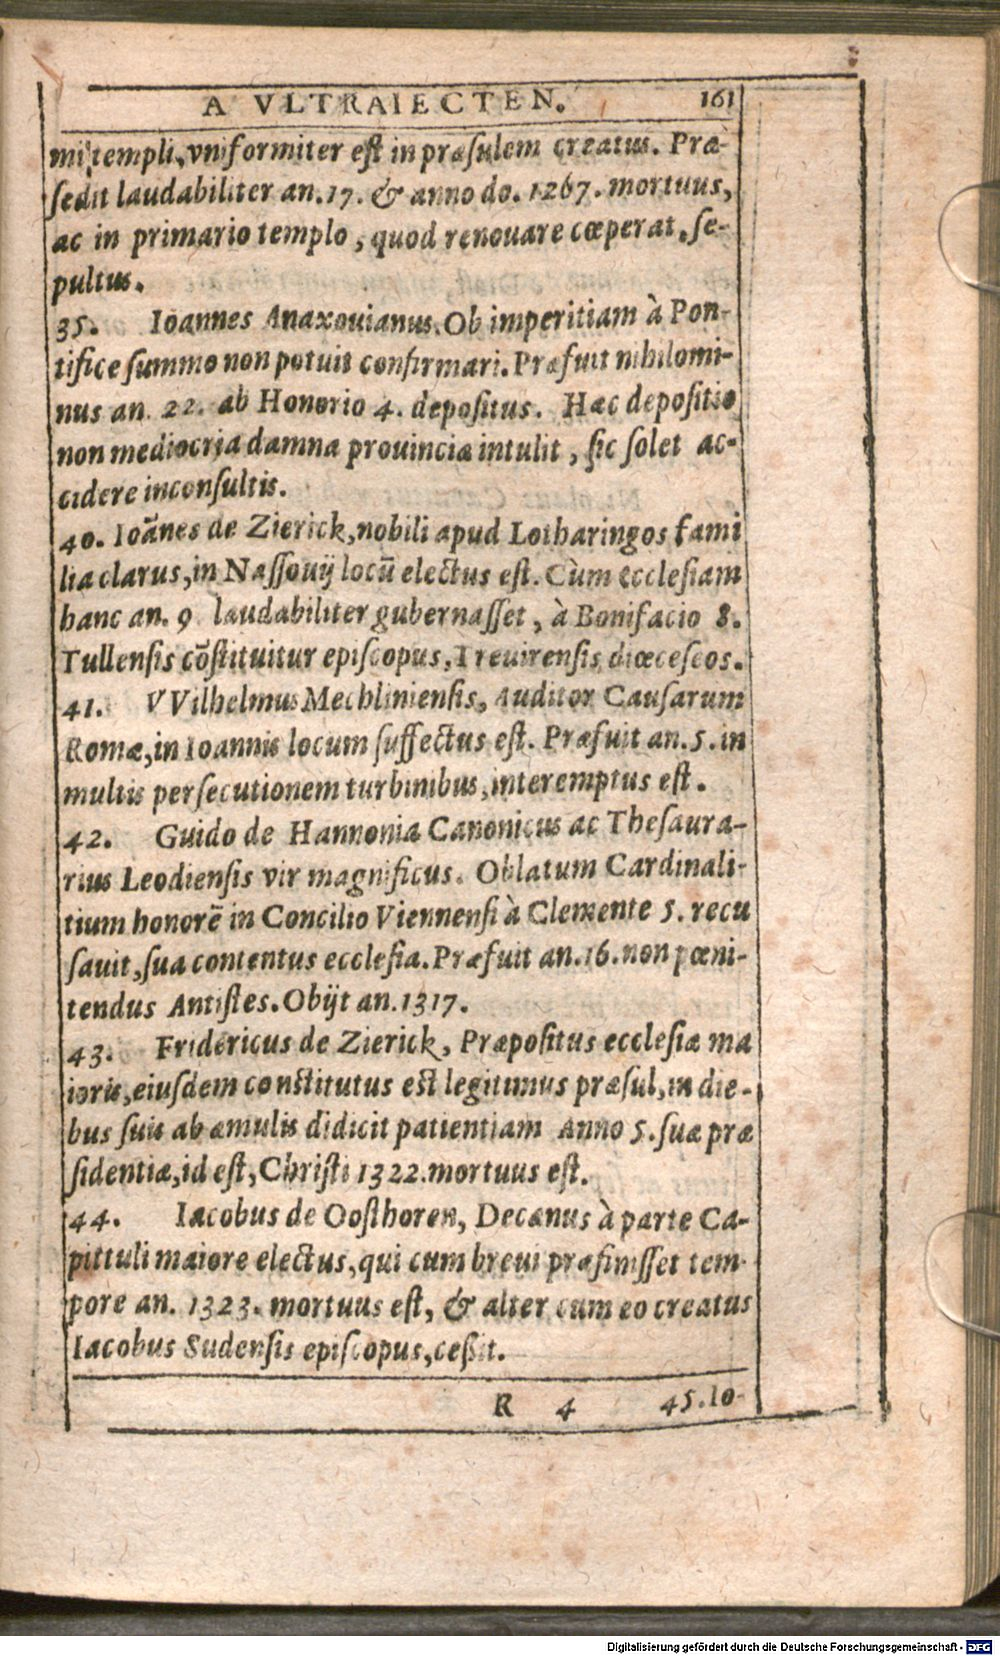 A VLTRAIECTEN. 161
mi templi, vniformiter est in præsulem creatus. Præ-
sedit laudabiliter an. 17. & anno do. 1267. mortuus,
ac in primario templo, quod renouare cœperat, se-
pultus.
35. Ioannes Anaxouianus. Ob imperitiam à Pon-
tifice summo non potuit confirmari. Præfuit nihilomi-
nus an. 22. ab Honorio 4. depositus. Hæc depositio
non mediocria damna prouinciæ intulit, sic solet ac-
cidere inconsultis.
40. Ioānes de Zierick, nobili apud Lotharingos fami
lia clarus, in Nassouij locū electus est. Cùm ecclesiam
hanc an. 9 laudabiliter gubernasset, à Bonifacio 8.
Tullensis cōstituitur episcopus, Treuirensis diœceseos.
41. VVilhelmus Mechliniensis, Auditor Causarum
Romæ, in Ioannis locum suffectus est. Præfuit an. 5. in
multis persecutionem turbinibus, interemptus est.
42. Guido de Hannonia Canonicus ac Thesaura-
rius Leodiensis vir magnificus. Oblatum Cardinali-
tium honorē in Concilio Viennensi à Clemente 5. recu
sauit, sua contentus ecclesia. Præfuit an. 16. non pœni-
tendus Antistes. Obijt an. 1317.
43. Fridericus de Zierick, Præpositus ecclesiæ ma
ioris, eiusdem constitutus est legitimus præsul, in die-
bus suis ab æmulis didicit patientiam Anno 5. suæ præ
sidentiæ, id est, Christi 1322. mortuus est.
44. Iacobus de Oosthoren, Decanus à parte Ca-
pittuli maiore electus, qui cum breui præfuisset tem-
pore an. 1323. mortuus est, & alter cum eo creatus
Iacobus Sudensis episcopus, cessit.
R 4 45. Io-
Digitalisierung gefördert durch die Deutsche Forschungsgemeinschaft - DFG